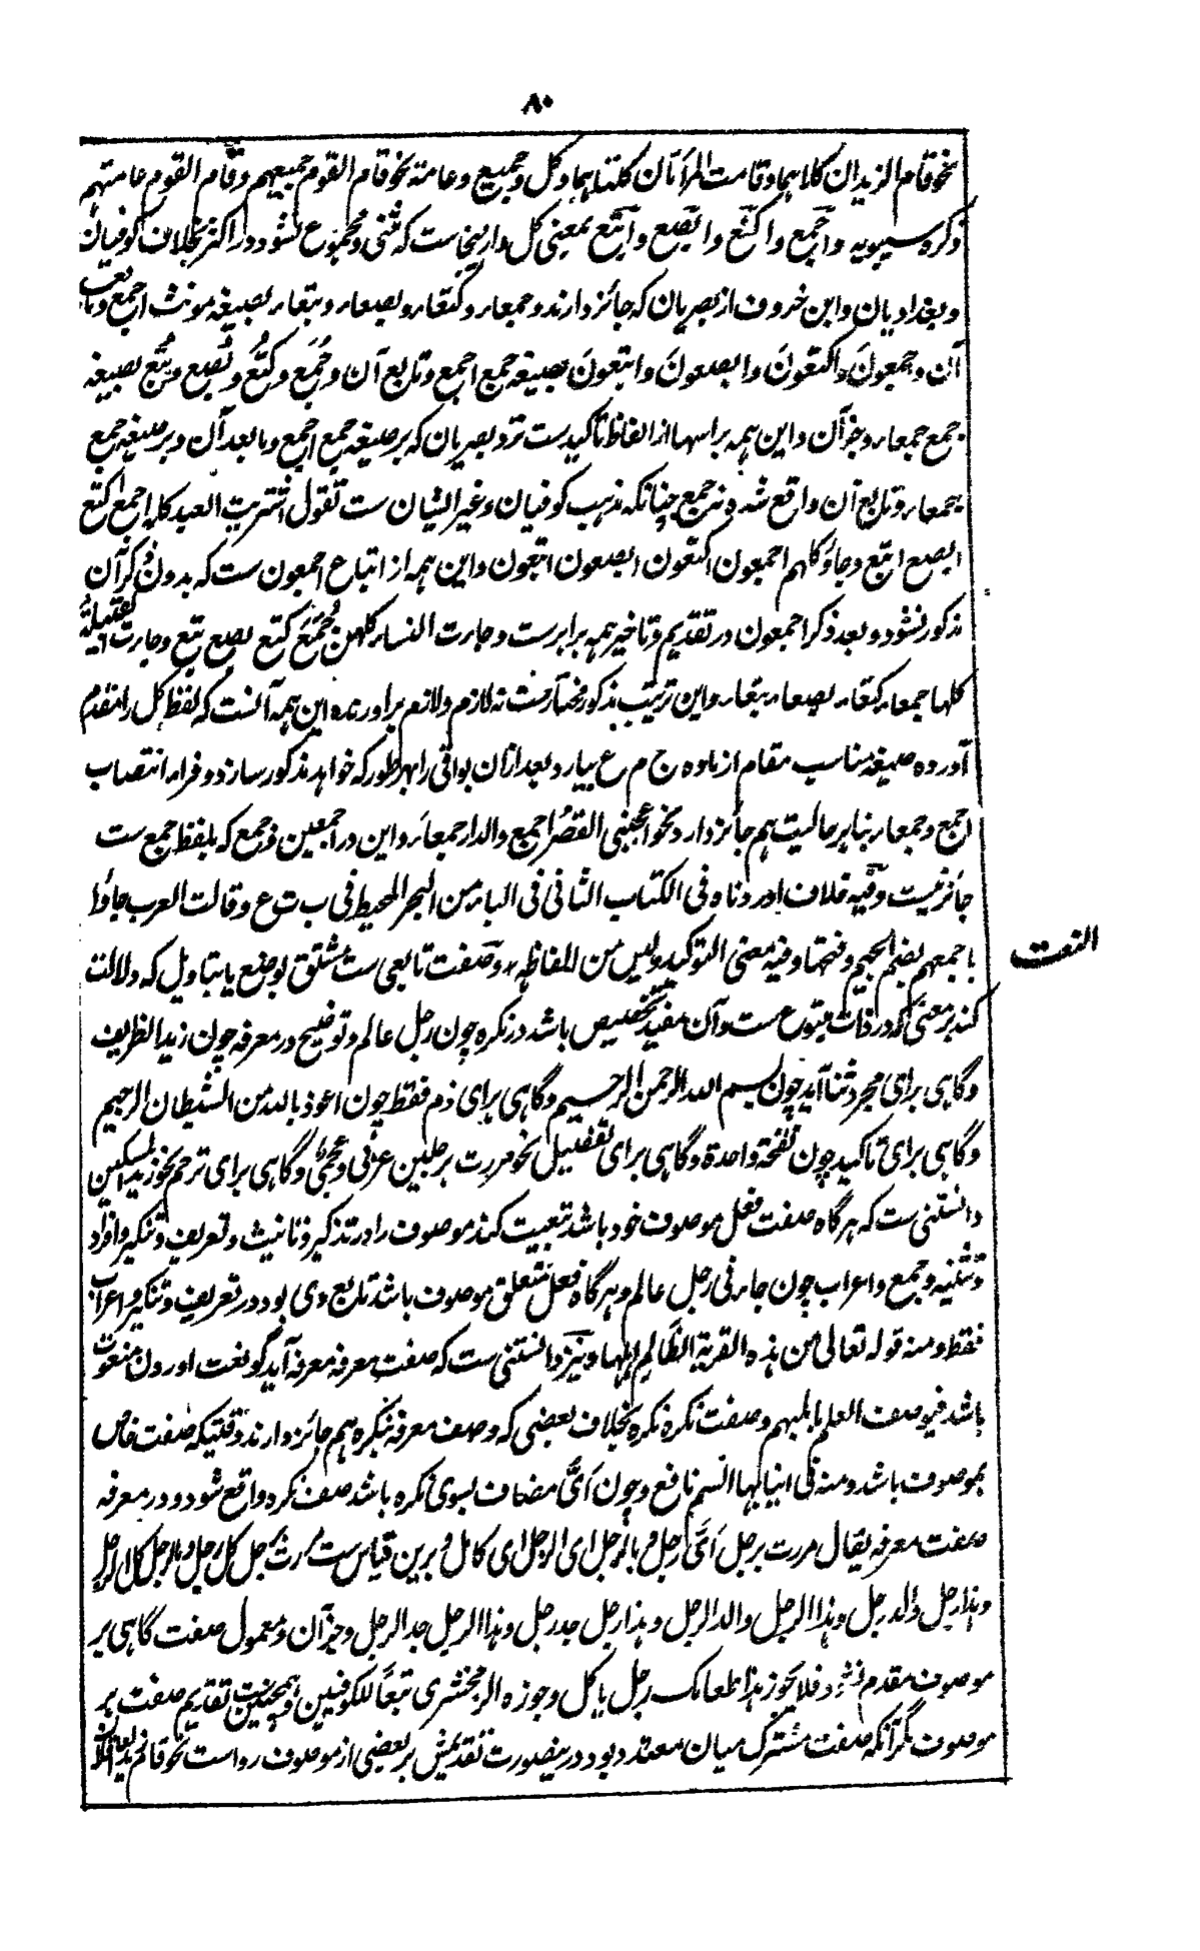 ۸۰
نحو قام الزیدان کلاہما و قامت المرأتان کلتاہما و کل و جمیع و عامة نحو قام القوم جمیعہم و قام القوم عامتہم
ذکرہ سیبویہ و اجمع و اکتع و ابصع و ابتع بمعنی کل و ازینجاست کہ مثنی و مجموع نشود در اکثر بخلاف کوفیان
و بغدادیان و ابن خروف از بصریان کہ جائز دارند و جمعاء و کتعاء و بصعاء و بتعاء بصیغہ مونث اجمع و توابع
آن و جمعون و اکتعون و ابصعون و ابتعون بصیغہ جمع اجمع و توابع آن و جُمَع و کُتَع و بُصَع و بُتَع بصیغہ
جمع جمعاء و جز آن و این ہمہ براسہا از الفاظ تاکیدست نزد بصریان کہ بر صیغہ جمع اجمع و مابعد آن و بر صیغہ جمع
جمعاء و توابع آن واقع شدہ نہ جمع چنانکہ مذہب کوفیان و غیر ایشان ست تقول اشتریت العبد کلہ اجمع اکتع
ابصع ابتع و جاؤ کلہم اجمعون اکتعون ابصعون ابتعون و این ہمہ از اتباع اجمعون ست کہ بدون ذکر آن
مذکور نشود و بعد ذکر اجمعون در تقدیم و تاخیر ہمہ برابرست و جاءت النساء کلہن جُمَع کتع بصع بتع و جاءت القبیلة
کلہا جمعاء کتعاء بصعاء بتعاء و این ترتیب مذکور مختارست نہ لازم و لازم بر آورندہ این ہمہ آنست کہ لفظ کل را مقدم
آوردہ صیغہ مناسب مقام از مادہ ج م ع بیارد بعد ازان بواقی را بہر طور کہ خواہد مذکور سازد و فراء انتصاب
اجمع و جمعاء بنابر حالیت ہم جائز دارد نحو اعجبنی القصر اجمع و الدار جمعاء و این در اجمعین و جمع کہ بلفظ جمع ست
جائز نیست و فیہ خلاف اوردناہ فی الکتاب الثانی فی الباء من البحر المحیط فی ب ت ع و قالت العرب جاؤا
باجمعہم بضم الجیم و فتحہا و فیہ معنی التوکید و لیس من الفاظہ و صفت تابعی ست مشتق بوضع یا بتاویل کہ دلالت
النعت
کند بر معنی کہ در ذات متبوع ست و آن مفید تخصیص باشد در نکرہ چون رجل عالم و توضیح در معرفہ چون زید الظریف
و گاہی برای مجرد ثنا آید چون بسم اللہ الرحمن الرحیم و گاہی برای ذم فقط چون اعوذ باللہ من الشیطان الرجیم
و گاہی برای تاکید چون نفخة واحدة و گاہی برای تفصیل نحو مررت برجلین عربی و عجمی و گاہی برای ترحم نحو زید المسکین
دانستنی ست کہ ہر گاہ صفت فعل موصوف خود باشد تبعیت کند موصوف را در تذکیر و تانیث و تعریف و تنکیر و افراد
و تثنیہ و جمع و اعراب چون جاءنی رجل عالم و ہر گاہ فعل متعلق موصوف باشد تابع وی بود در تعریف و تنکیر و اعراب
فقط و منہ قولہ تعالی من ہذہ القریة الظالم اہلہا و نیز دانستنی ست کہ صفت معرفہ معرفہ آید گو نعت اورون منعوت
باشد فیوصف العلم بالمبہم و صفت نکرہ نکرہ بخلاف بعضی کہ وصف معرفہ بنکرہ ہم جائز دارند وقتیکہ صفت خاص
بموصوف باشد و منہ فی انیابہا السم ناقع و چون اَیّ مضاف بسوی نکرہ باشد صفت نکرہ واقع شود و در معرفہ
صفت معرفہ یقال مررت برجل اَیّ رجل و بالرجل ای الرجل ای کامل و برین قیاس ست مررت برجل کل رجل و بالرجل کل الرجل
و ہذا رجل والد رجل و ہذا الرجل والد الرجل و ہذا رجل جد رجل و ہذا الرجل جد الرجل و جز آن و معمول صفت گاہی بر
موصوف مقدم نشود فلا یجوز ہذا طعامک رجل یاکل و جوزہ الزمخشری تبعاً للکوفیین و ہمچنین تقدیم صفت بر
موصوف مگر آنکہ صفت مشترک میان معتدد بود درینصورت تقدیمش بر بعضی از موصوف رواست نحو قام زید